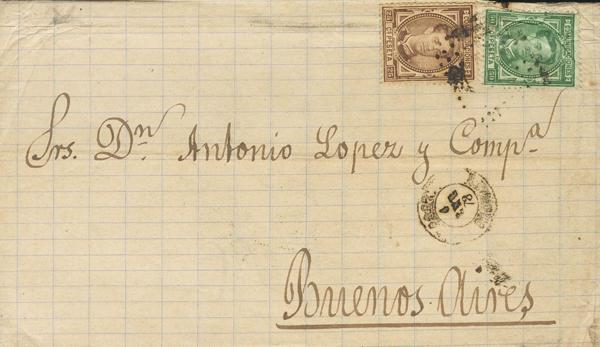 Srs. Dn. Antonio Lopez y Compª
Buenos Aires